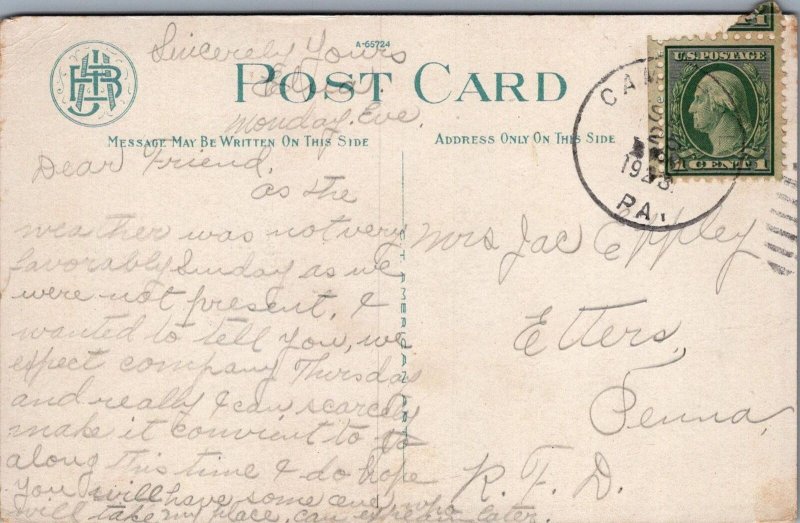 A-65724
Sincerely Yours
POST CARD
Monday, Eve,
MESSAGE MAY BE WRITTEN ON THIS SIDE
ADDRESS ONLY ON THIS SIDE
U.S. POSTAGE
1 CENT 1
CAM
1923
PA.
Dear Friend,
as the
weather was not very
favorably Sunday as we
were not present, I
wanted to tell you, we
expect company Thursday
and really I can scarcely
make it convient to go
along this time I do hope
you will have some one, who
will take my place, can explain later.
AMERICAN ART
Mrs Jac Eppley
Etters,
Penna,
R. F. D.